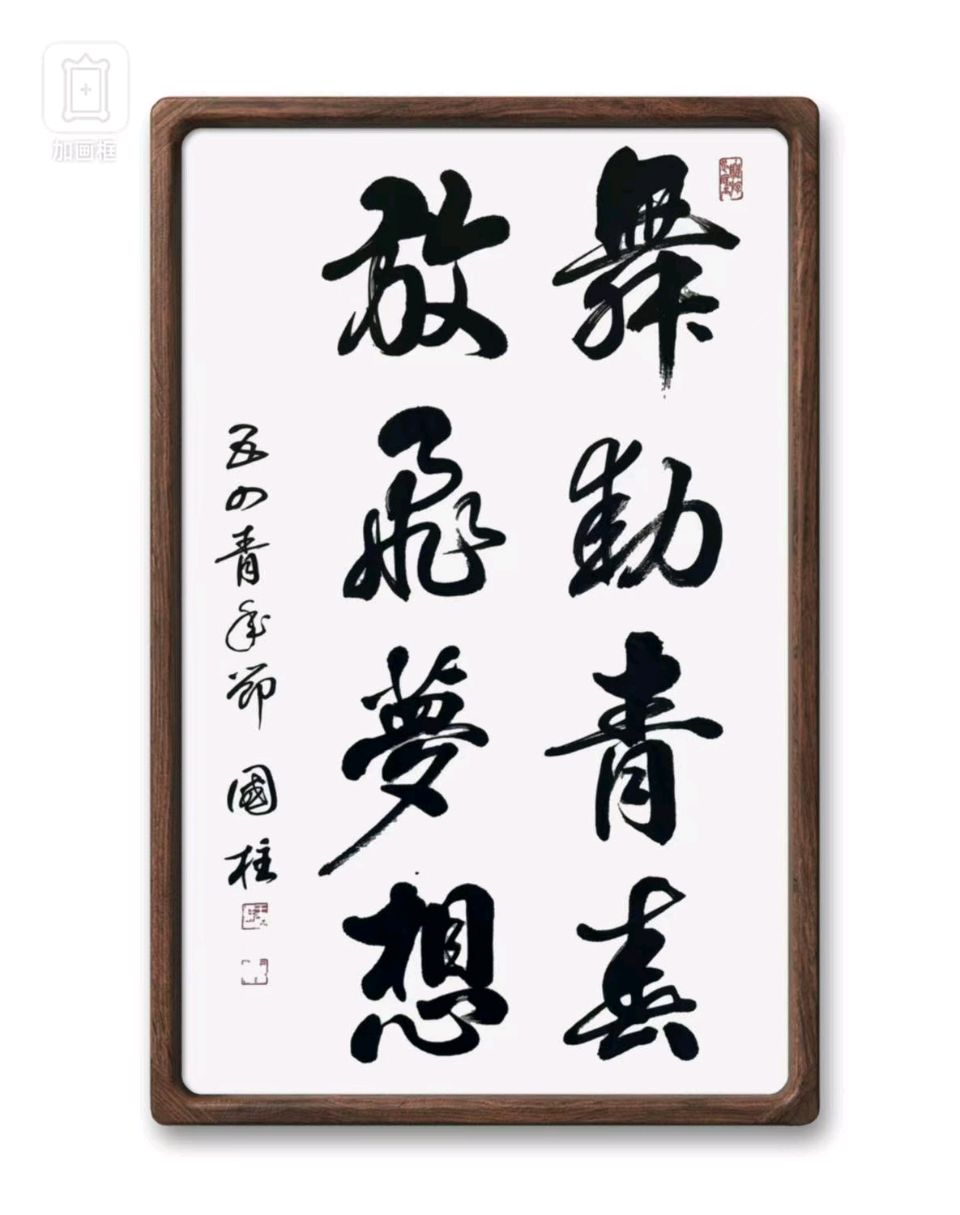 舞動青春
放飛夢想
五四青年節 國柱
加画框